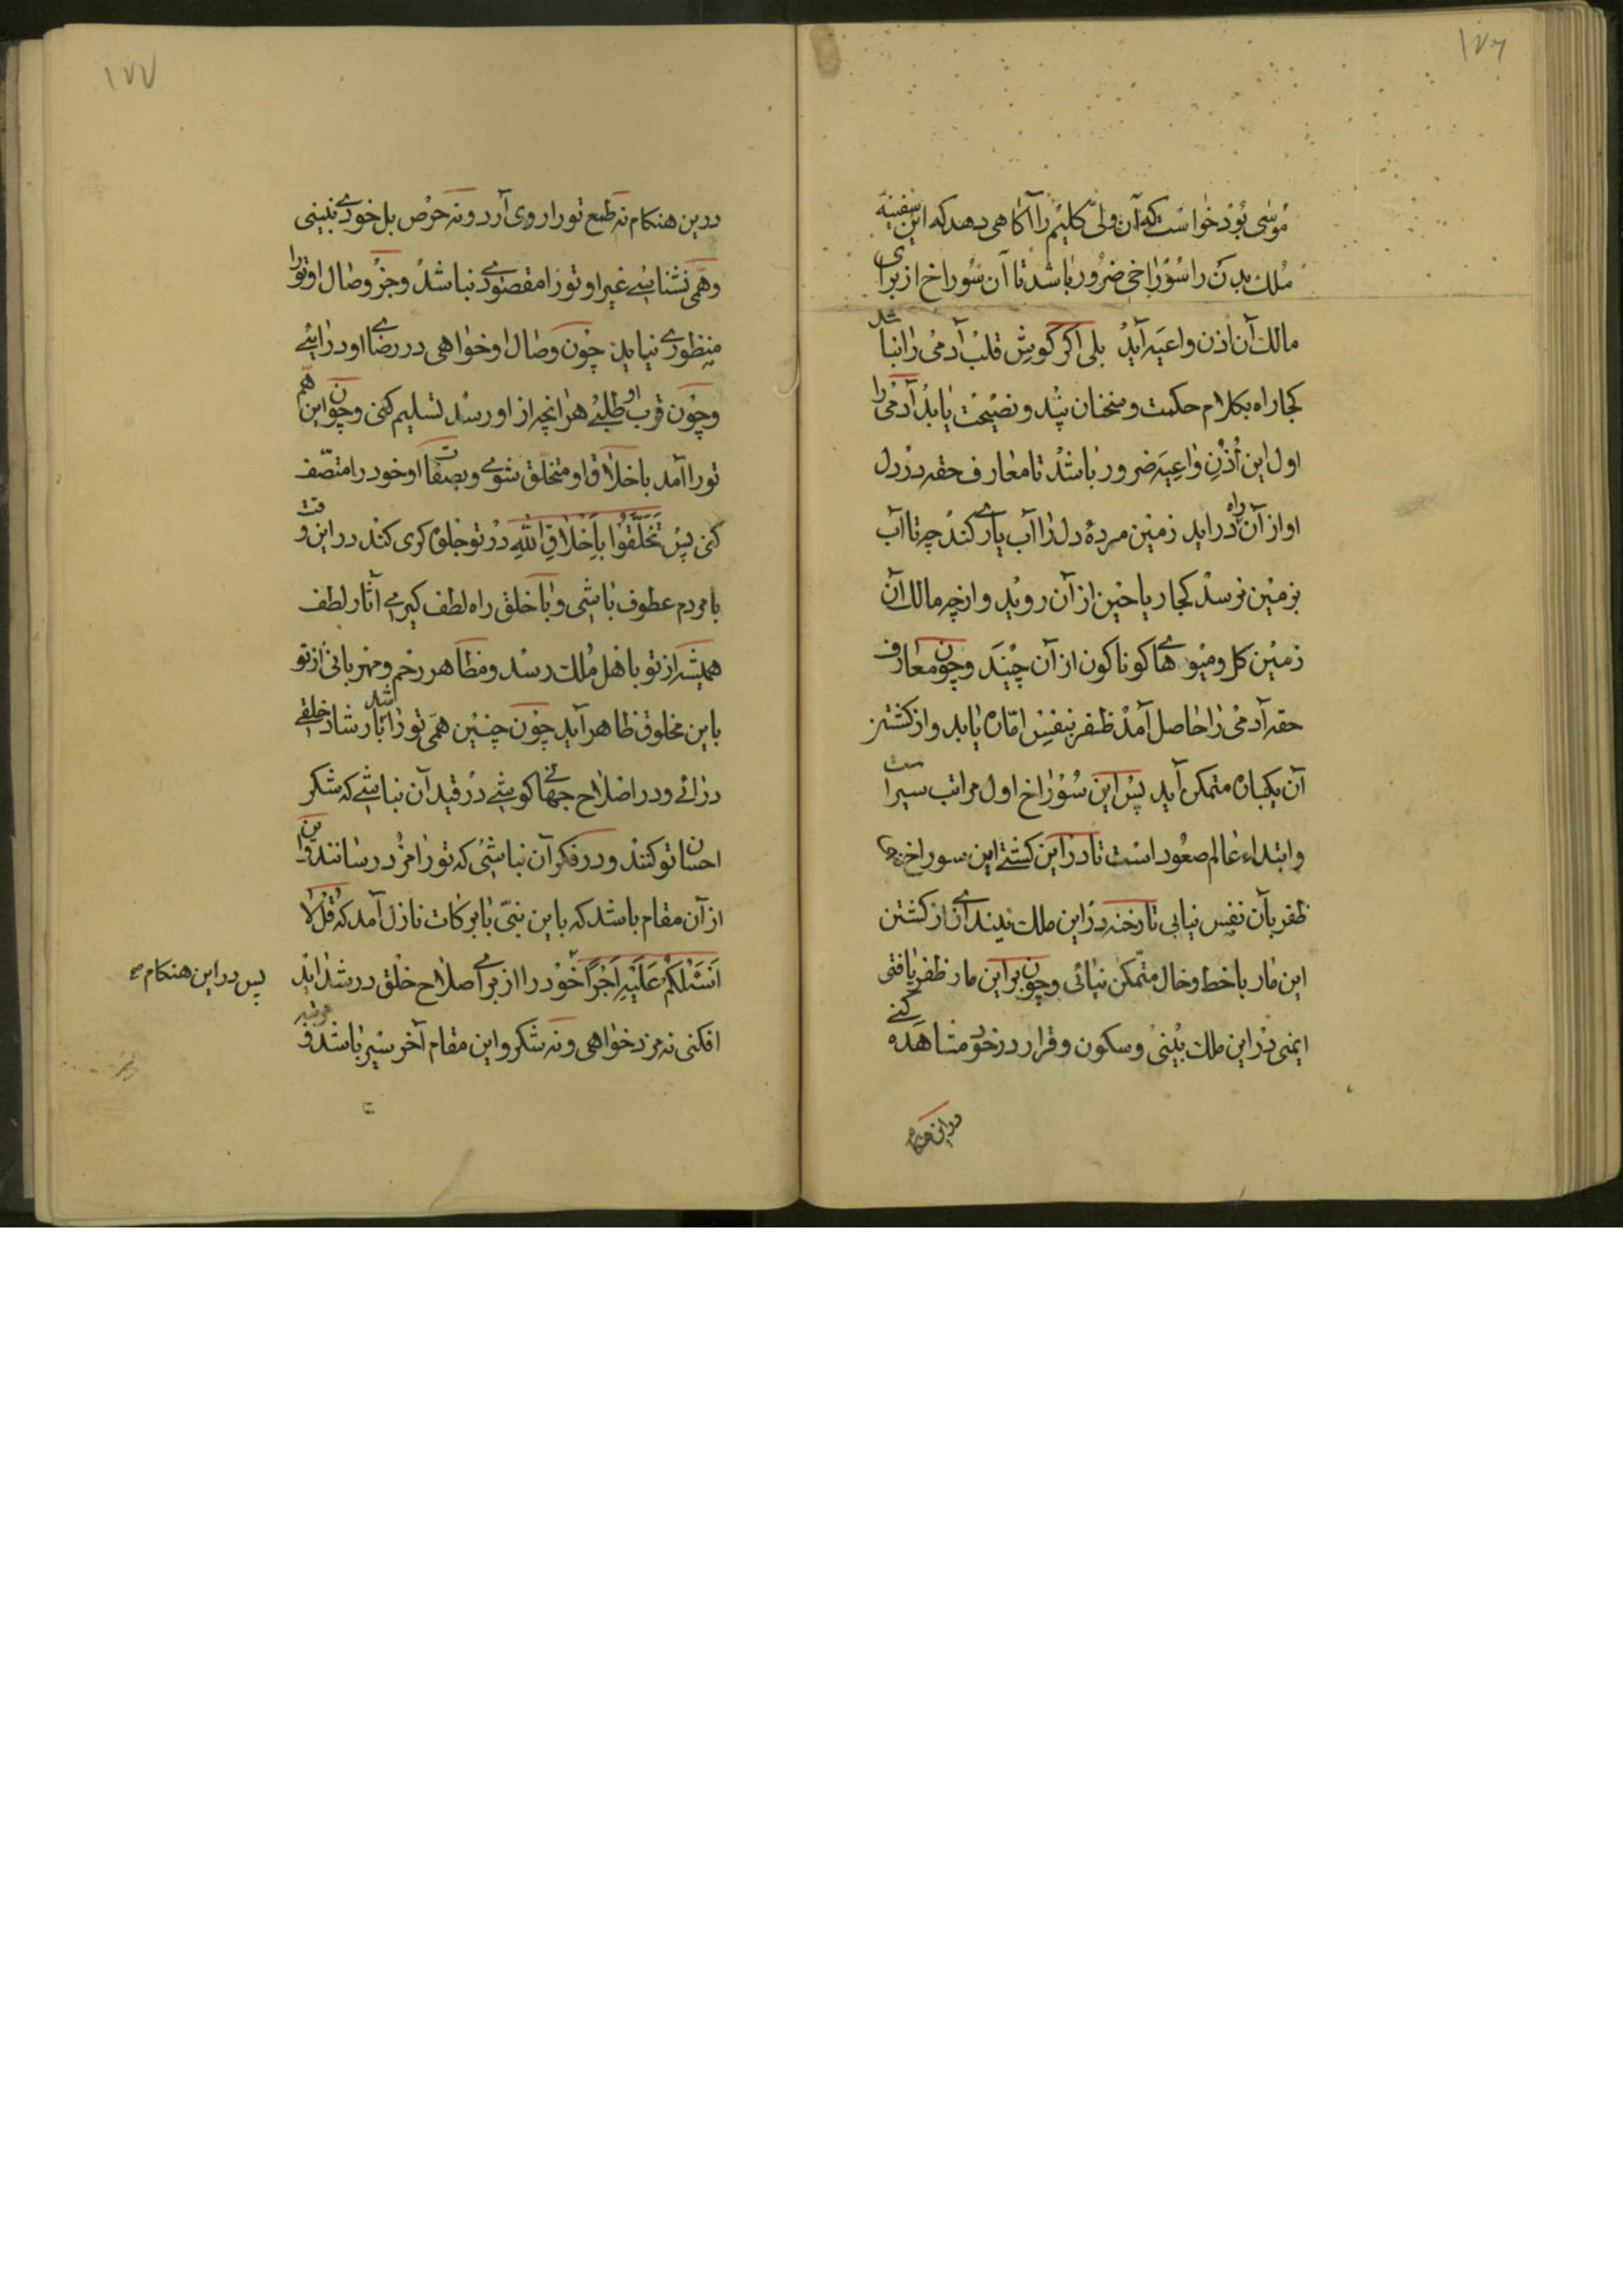 ۱۷۶
موسی بود خواست که آن ولی کلیم را آکاهی دهد که این سفینهٔ
ملک بدن را سوراخی ضرور باشد تا آن سوراخ از برای
مالک آن اذن واعیه آید بلی اکر کوش قلب آدمی را نباشد
کجا راه بکلام حکمت و سخنان پند و نصیحت یابد آدمی را
اول این اُذُنِ واعِیَه ضرور باشد تا معارف حقه در دل
او از آن راه در اید زمین مردهٔ دل را آب یاری کند چه تا آب
بزمین نرسد کجا ریاحین از آن روید و از چه مالک آن
زمین کل و میوه های کوناکون از آن چیند و چون معارف
حقه آدمی را حاصل آمد ظفر بنفس امّاره یابد و از کشتن
آن یکباره متمکن آید پس این سوراخ اول مراتب سیر است
و ابتداء عالم صعود است تا در این کشتی این سوراخ
ظفر بان نفس نیابی تا رخنه در این ملک نیندازی از کشتن
این مار با خط و خال متمکن نیائی و چون بر این مار ظفر یافتی
ایمنی در این ملک بینی و سکون و قرار در خود مشاهده کنی
در این هنکام
۱۷۷
درین هنکام نه طمع تو را روی آرد و نه حرص بل خودی نبینی
و همی نشناسی غیر او تو را مقصودی نباشد و جز وصال او تو را
منظوری نیاید چون وصال او خواهی در رضای او در ائی
و چون قرب او طلبی هر انچه از او رسد تسلیم کنی و چون این هم
تو را آمد باخلاق او متخلّق شوی و بصفات او خود را متّصف
کنی پس تَخَلَّقُوا بِاَخْلاقِ اللهِ در تو جلوه کری کند در این وقت
با مردم عطوف باشی و با خلق راه لطف کیری آثار لطف
همیشه از تو باهل ملک رسد و مظاهر رحم و مهربانی از تو
باین مخلوق ظاهر آید چون چنین همی تو را باشد بارشاد خلقی
در ائی و در اصلاح جهانی کوشی در قید آن نباشی که شکر
احسان تو کنند و در فکر آن نباشی که تو را مزد رسانند و این
از آن مقام باشد که باین نبیّ با برکات نازل آمد که قُلْ لا
اَسْئَلُکُمْ عَلَیْهِ اَجْرًا خود را از برای اصلاح خلق در شداید
پس در این هنکام
افکنی نه مزد خواهی و نه شکر و این مقام آخر سیر باشد و مرتبه